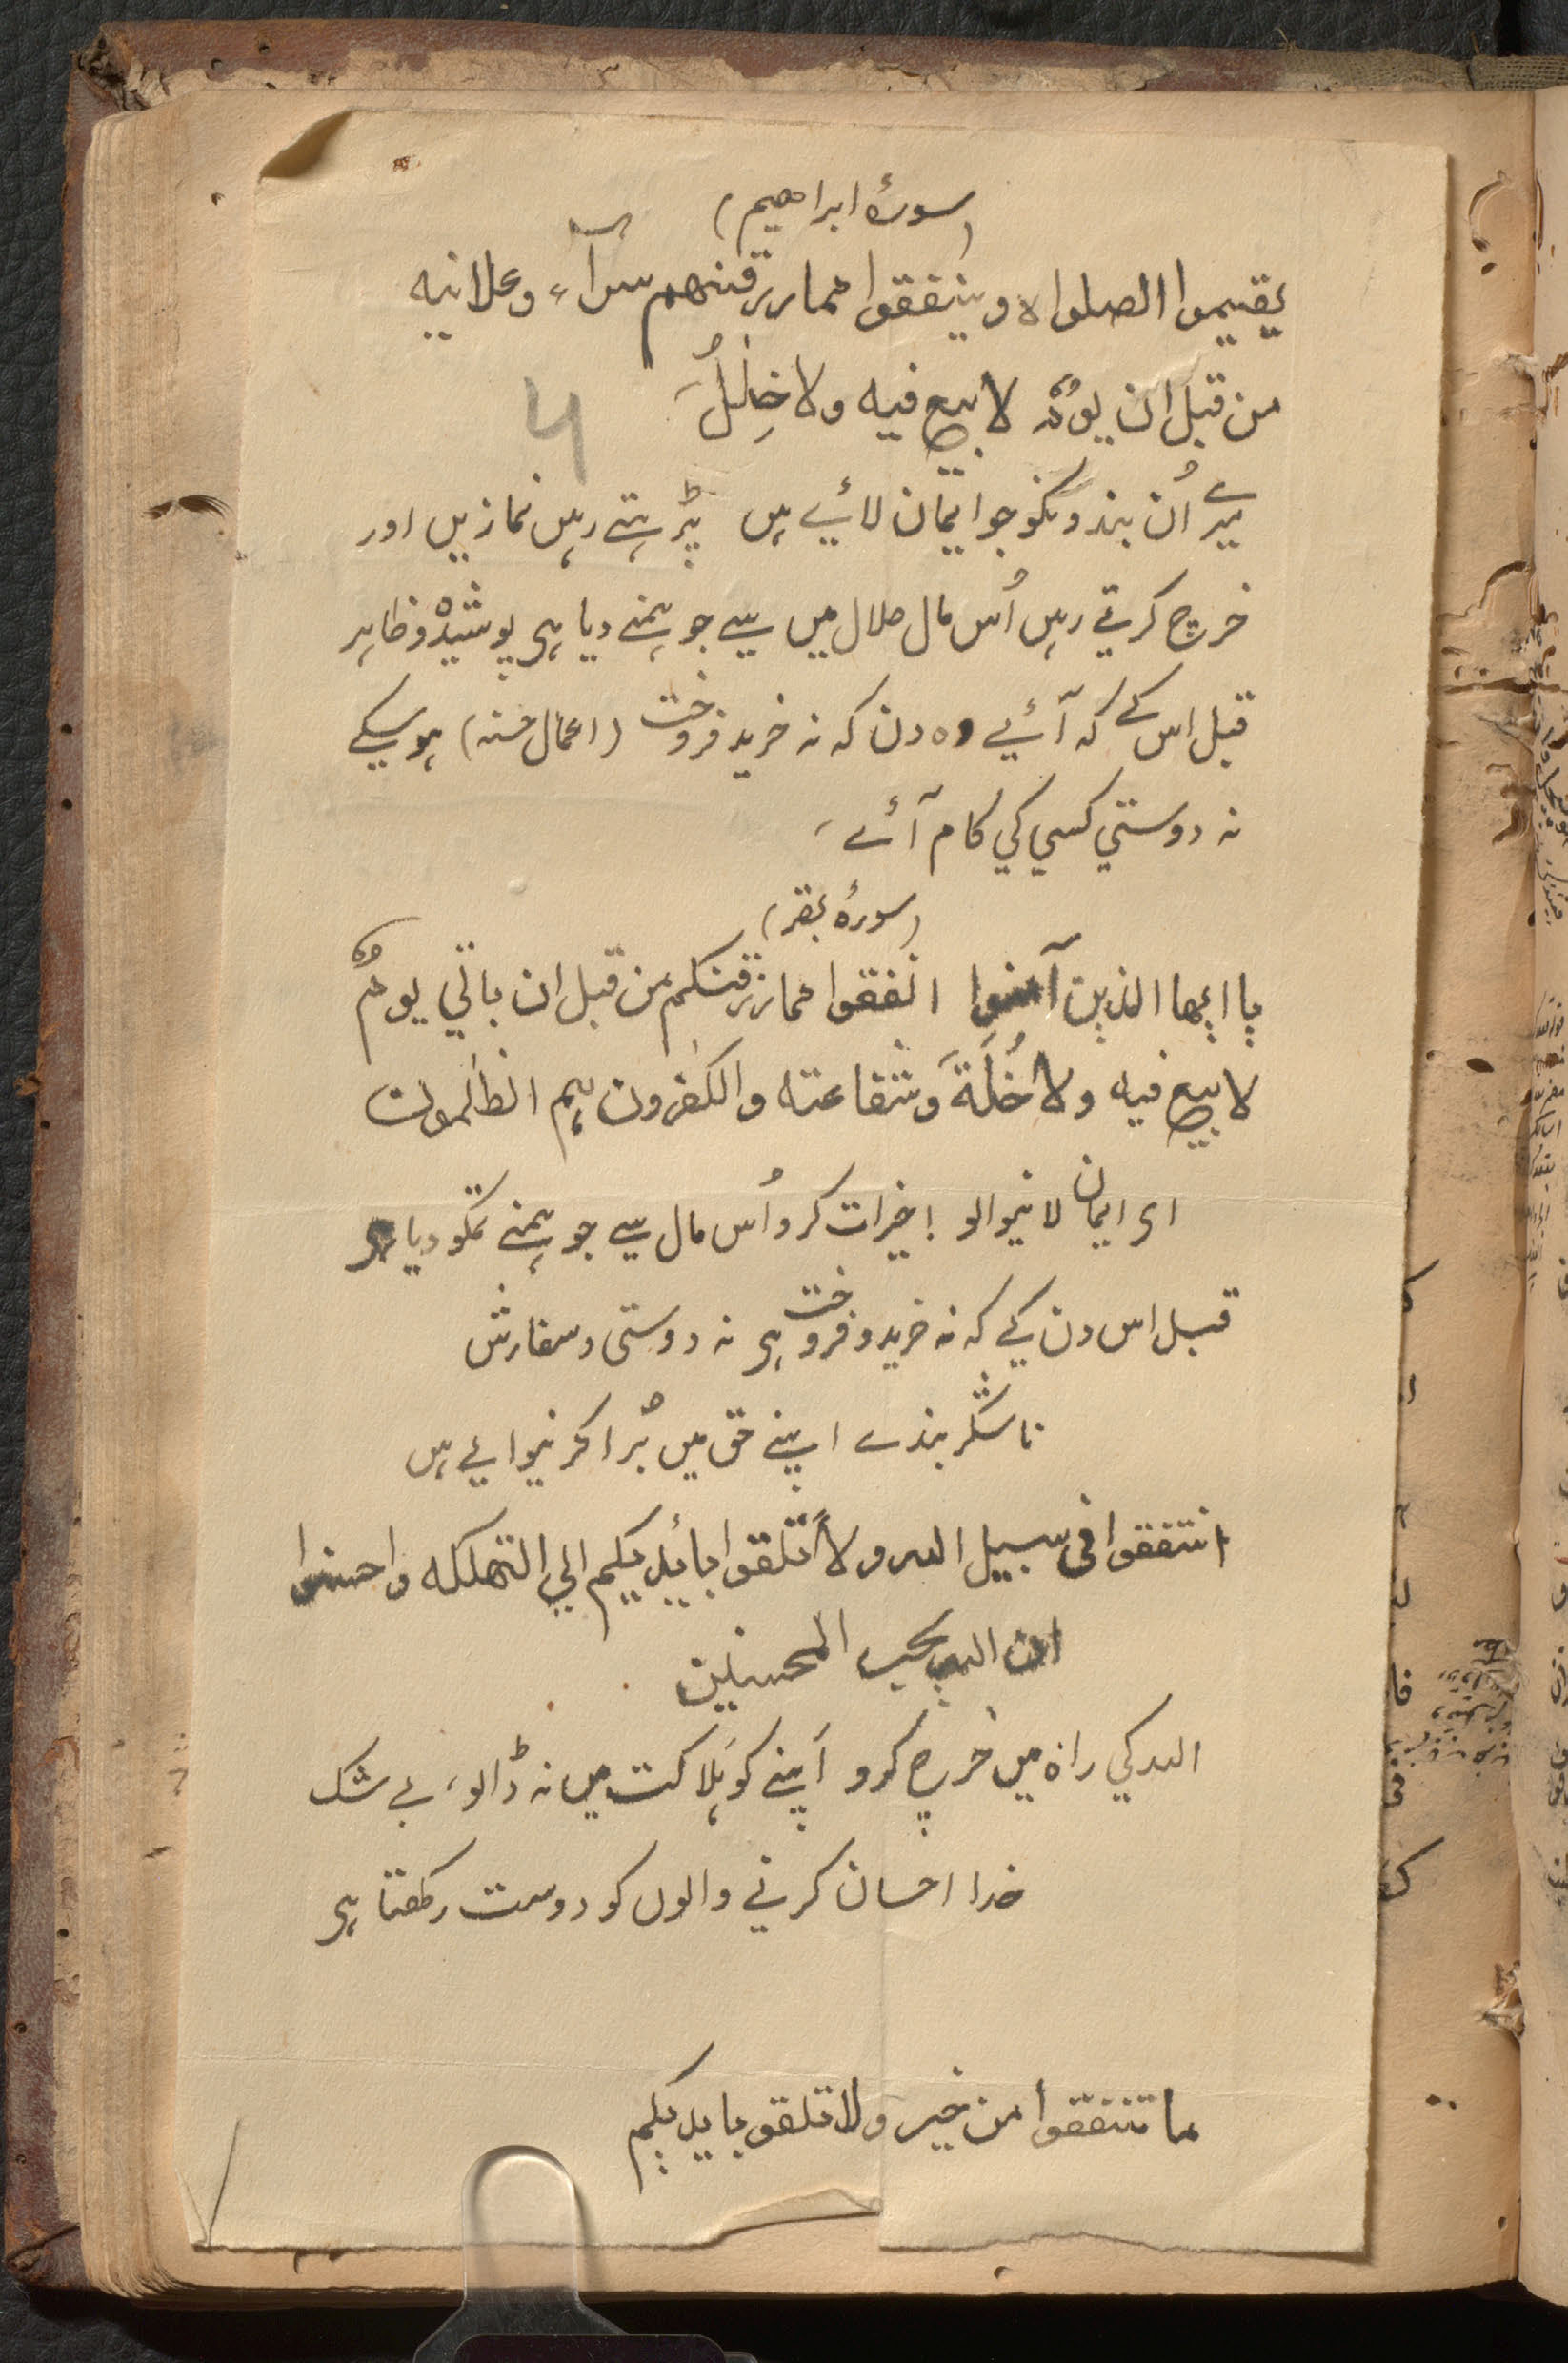 (سورۂ ابراھیم)
یقیموا الصلواہ و ینفقوا مما رزقنھم سرآء و علانیہ
من قبل ان یومٌ لا بیع فیہ ولا خِلٰلُ
میرے اُن بندونکو جو ایمان لائے ہیں پڑہتے رہیں نمازیں اور
خرچ کرتے رہیں اُس مال حلال میں سے جو ہمنے دیا ہی پوشیدہ و ظاہر
قبل اس کے کہ آئے وہ دن کہ نہ خرید فروخت (اعمال حسنہ) ہو سکے
نہ دوستی کسی کی کام آئے
(سورۂ بقر)
یا ایھا الذین آمنوا انفقوا مما رزقنکم من قبل ان یاتی یومٌ
لا بیع فیہ ولا خُلَّۃَ وَ شفاعتہ والکفرون ہم الظٰلمون
ای ایمان لانیوالو ! خیرات کرو اُس مال سے جو ہمنے تمکو دیا ہی
قبل اس دن کے کہ نہ خرید و فروخت ہی نہ دوستی و سفارش
ناشکر بندے اپنے حق میں بُرا کرنیوالے ہیں
انتفقوا فی سبیل اللہ ولا تلقوا بائدیکم الی التھلکہ واحسنوا
ان اللہ یحب المحسنین
اللہ کی راہ میں خرچ کرو اَپنے کو ہَلاکت میں نہ ڈالو، بے شک
خدا احسان کرنے والوں کو دوست رکھتا ہی
ما تنفقوا من خیر ولا تلقو بایدیکم